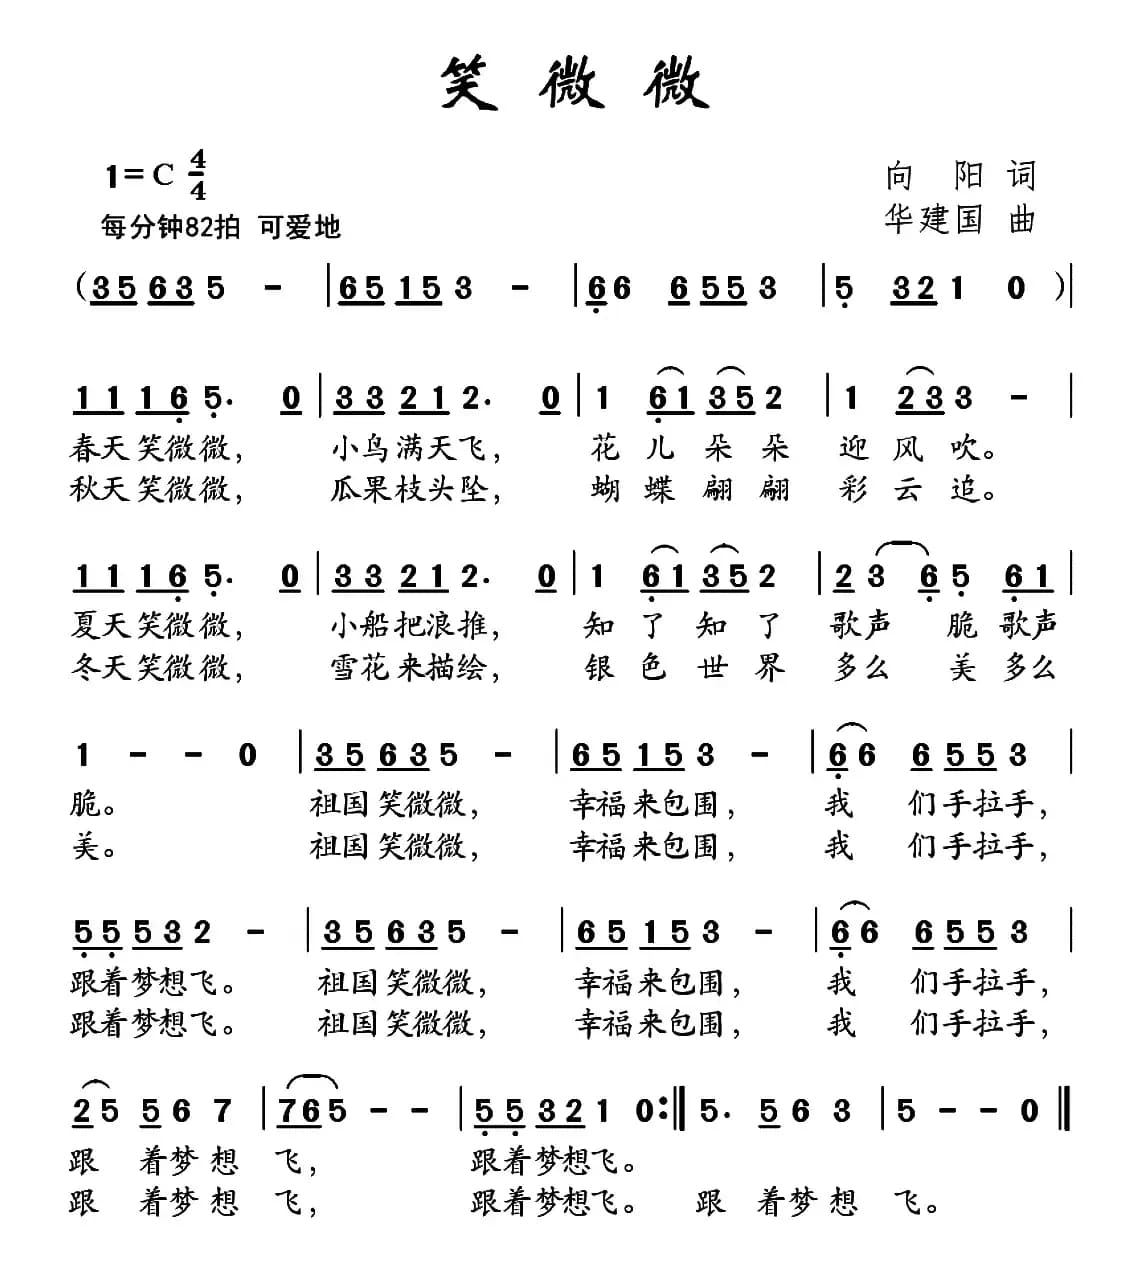 笑微微
1=C 4/4
向阳词
每分钟82拍 可爱地
华建国 曲
(35 63 5 - | 65 15 3 - | 66 6 553 | 5 32 1 0 )|
11 16 5. 0 | 33 21 2. 0 | 1 61 35 2 | 1 23 3 - |
春天笑微微, 小鸟满天飞, 花儿朵朵 迎风吹。
秋天笑微微, 瓜果枝头坠, 蝴蝶翩翩 彩云追。
11 16 5. 0 | 33 21 2. 0 | 1 61 35 2 | 2 3 6 5 61 |
夏天笑微微, 小船把浪推, 知了知了 歌声 脆歌声
冬天笑微微, 雪花来描绘, 银色世界 多么 美多么
1 - - 0 | 35 63 5 - | 65 15 3 - | 66 6 553 |
脆。 祖国笑微微, 幸福来包围, 我 们手拉手,
美。 祖国笑微微, 幸福来包围, 我 们手拉手,
55 53 2 - | 35 63 5 - | 65 15 3 - | 66 6 553 |
跟着梦想飞。 祖国笑微微, 幸福来包围, 我 们手拉手,
跟着梦想飞。 祖国笑微微, 幸福来包围, 我 们手拉手,
25 5 6 7 | 765 - - | 55 321 0 :‖ 5. 5 6 3 | 5 - - 0 ‖
跟 着梦想 飞, 跟着梦想飞。
跟 着梦想 飞, 跟着梦想飞。 跟 着梦想 飞。